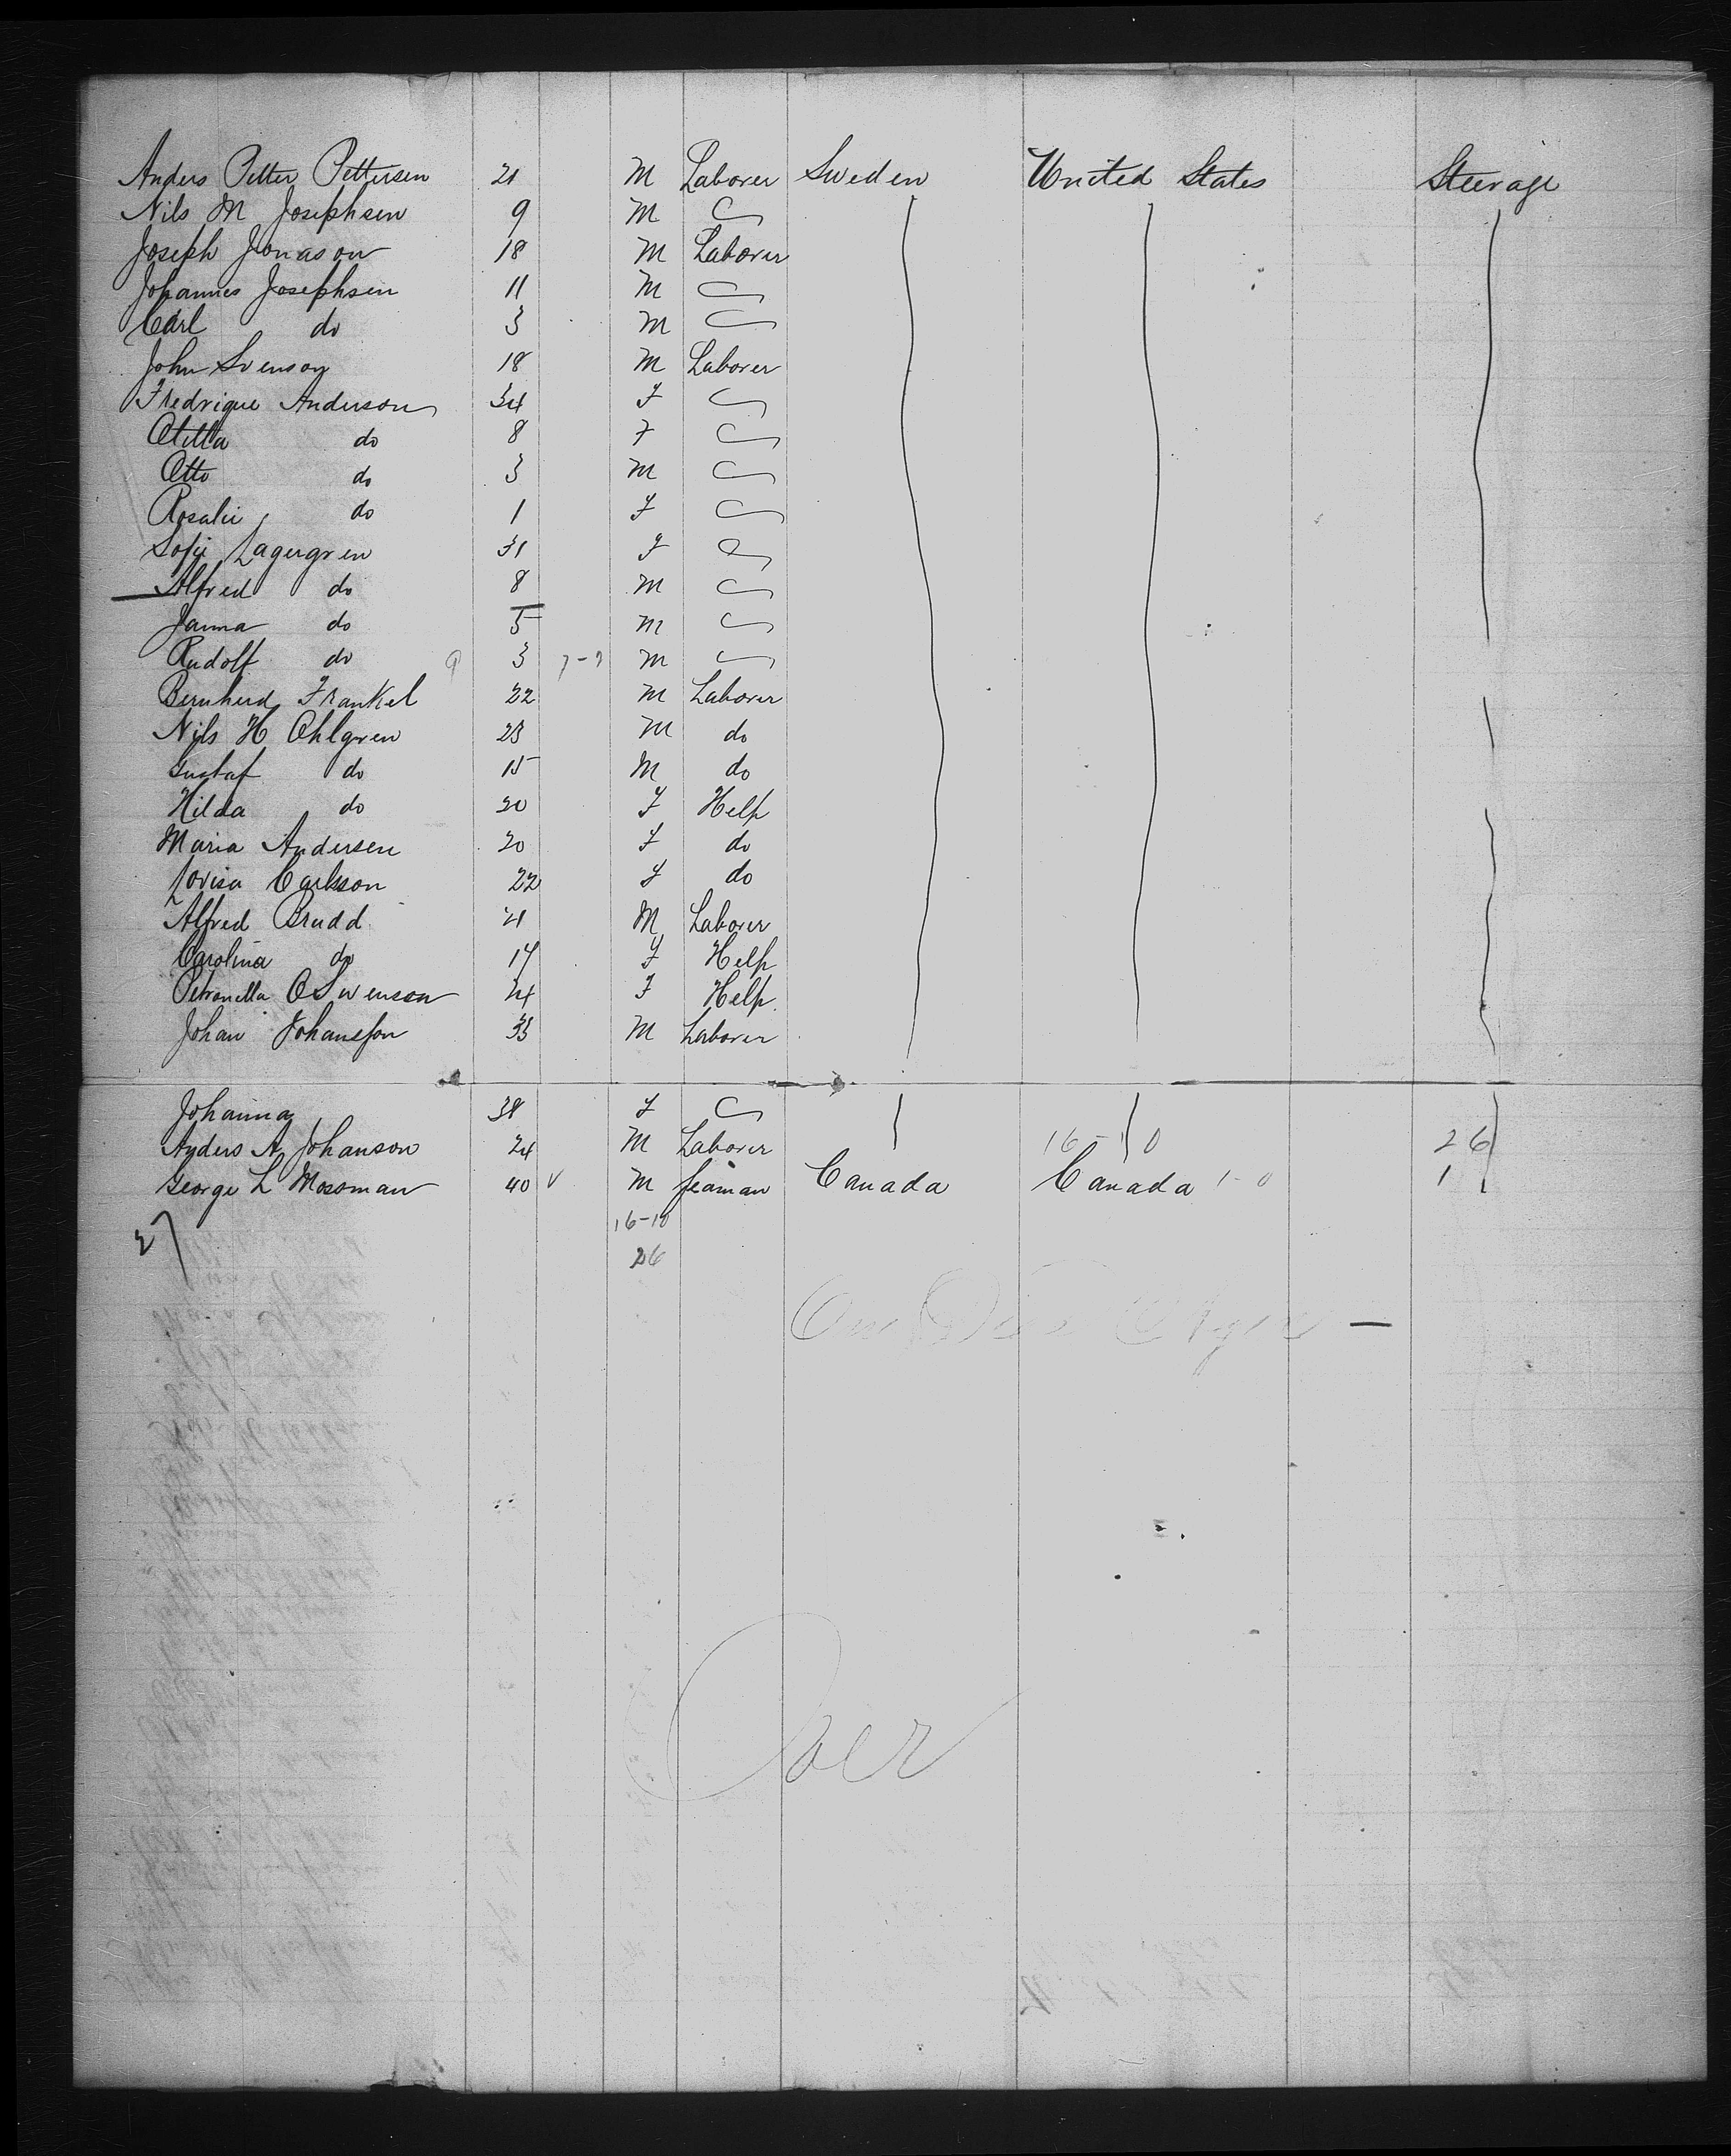 Anders Petter Pettersen 21 M Laborer Sweden United States Steerage
Nils M Josephsen 9 M
Joseph Jonason 18 M Laborer
Johannes Josephsen 11 M
Carl do 3 M
John Svenson 18 M Laborer
Fredrique Anderson 34 F
Otilla do 8 F
Otto do 3 M
Rosalie do 1 F
Sofie Lagergren 31 F
Alfred do 8 M
Janna do 5 M
Rudolf do 3 M
Bernherd Frankel 22 M Laborer
Nils H Ohlgren 23 M do
Gustaf do 15 M do
Hilda do 20 F Help
Maria Andersen 20 F do
Lovisa Carlsson 22 F do
Alfred Brudd 21 M Laborer
Carolina do 17 F Help
Petronella O Swenson 24 F Help
Johan Johansson 33 M Laborer
Johanna 38 F
Anders A Johanson 24 M Laborer 16-10 26
George L Mossman 40 M Seaman Canada Canada 1-0 1
27 16-10
26
Over